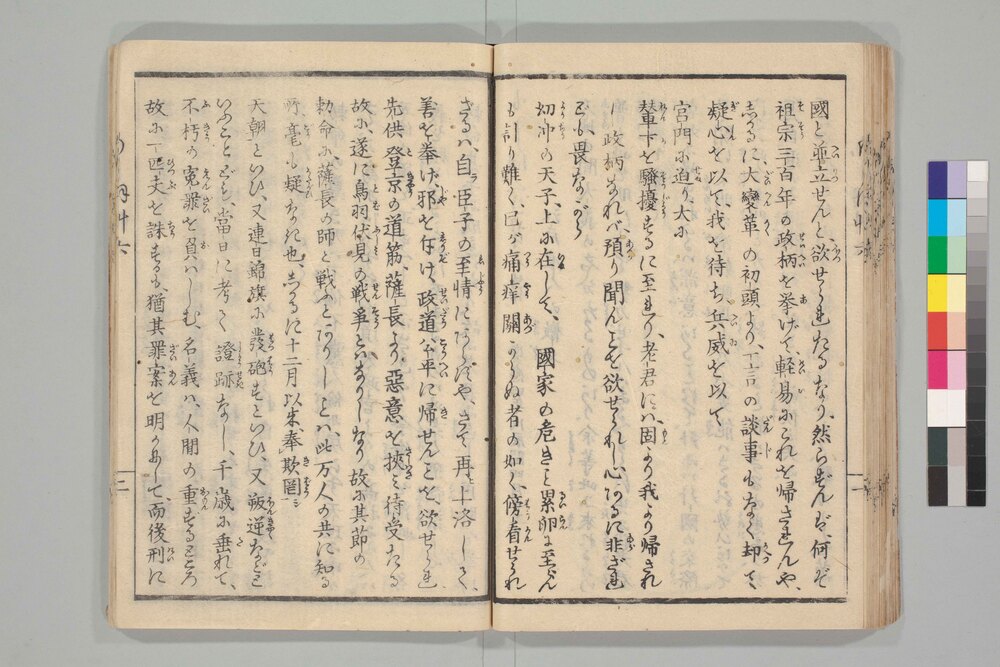 國と並立せんと欲せられたるなり、然らずんバ、何ぞ
祖宗三百年の政柄を挙げて軽易にこれを帰されんや、
しかるに大變革の初頭より、一言の談事もなく却て
疑心を以て我を待ち兵威を以て
宮門に迫り大に
輦下を騒擾するに至れり、老君にハ固より我より帰され
し政柄なれバ預り聞んとを欲せられし心あるに非ざれ
ども畏ながら
幼冲の天子、上に在して、國家の危きと累卵に至らん
も計り難く、已が痛痒關からぬ者の如く、傍看せられ
ざるハ、自ラ臣子の至情にあらずや、さて再ヒ上洛しく、
善を挙け邪を斥け、政道公平に帰せんことを欲せられ、
先供登京の道筋、薩長より惡意を挾ミ待受たる
故に、遂に鳥羽伏見の戦爭とハなりしなり故に其節の
勅命に、薩長の師と戦ふとありしとハ、此万人の共に知る
所、毫も疑なき也、しかるに十二月以来奉欺罔ミ
天朝といひ、又連日錦旗に發砲すといひ、又叛逆などと
いふことども、當日に考て證跡なし、千歳に垂れて、
不朽の冤罪を負ハしむ、名義ハ、人間の重ずるところ
故に一匹夫を誅するも、猶其罪案を明かにして、而後刑に